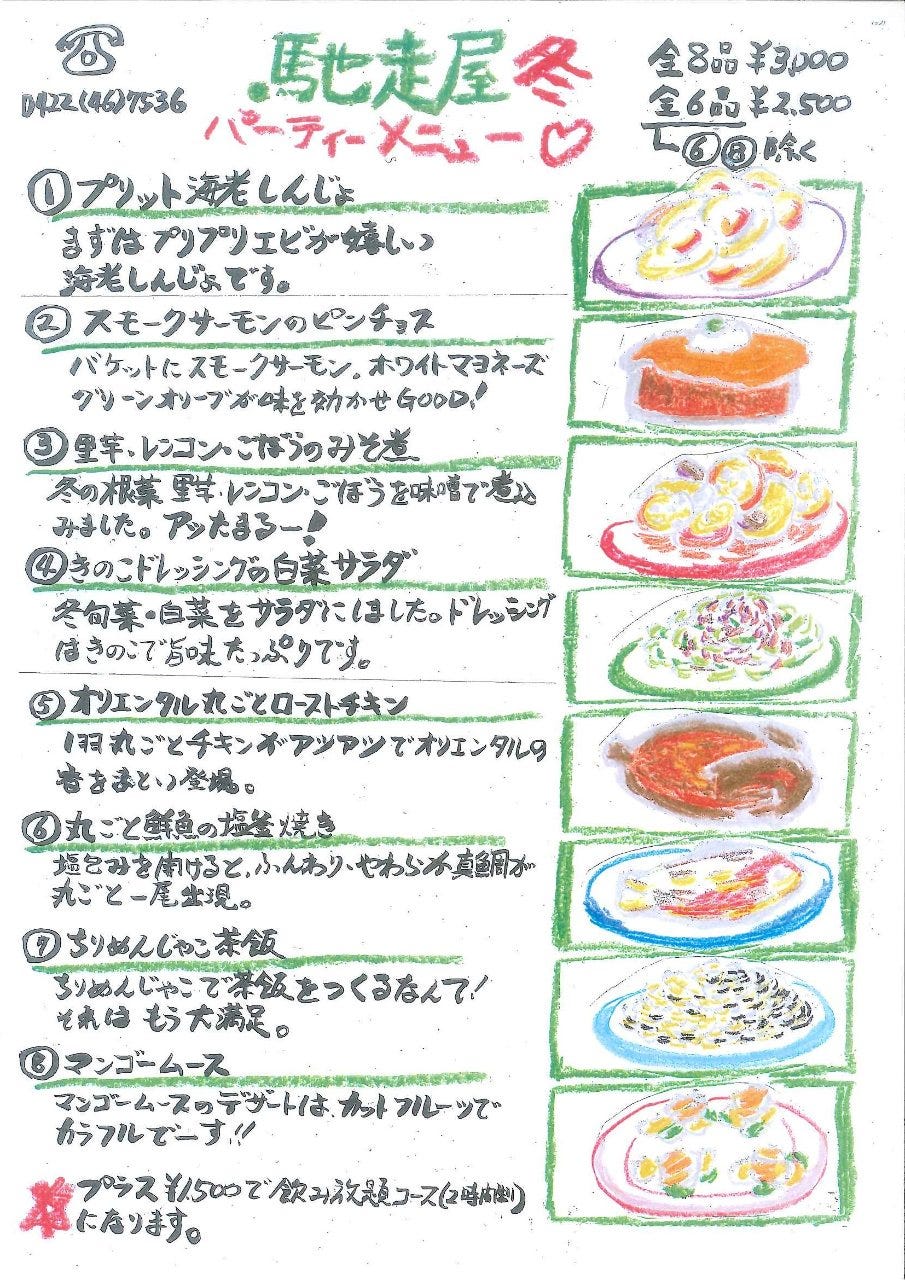 0422(46)7536
馳走屋 冬
パーティーメニュー♡
全8品 ¥3,000
全6品 ¥2,500
⑥⑧除く
① プリット海老しんじょ
まずは プリプリエビが嬉しい
海老しんじょです。
② スモークサーモンのピンチョス
バケットにスモークサーモン。ホワイトマヨネーズ
グリーンオリーブが味を効かせGOOD!
③ 里芋・レンコン・ごぼうのみそ煮
冬の根菜 里芋・レンコン・ごぼうを味噌で煮込
みました。アッたまるー!
④ きのこドレッシングの白菜サラダ
冬旬菜・白菜をサラダにしました。ドレッシング
はきのこで旨味たっぷりです。
⑤ オリエンタル丸ごとローストチキン
1羽丸ごとチキンがアツアツでオリエンタルの
香をまとい登場。
⑥ 丸ごと鮮魚の塩釜焼き
塩包みを開けると、ふんわり・やわらか真鯛が
丸ごと一尾出現。
⑦ ちりめんじゃこ茶飯
ちりめんじゃこで茶飯をつくるなんて!
それは もう大満足。
⑧ マンゴームース
マンゴームースのデザートは、カットフルーツで
カラフルでーす!!
プラス¥1,500で飲み放題コース(2時間制)
になります。